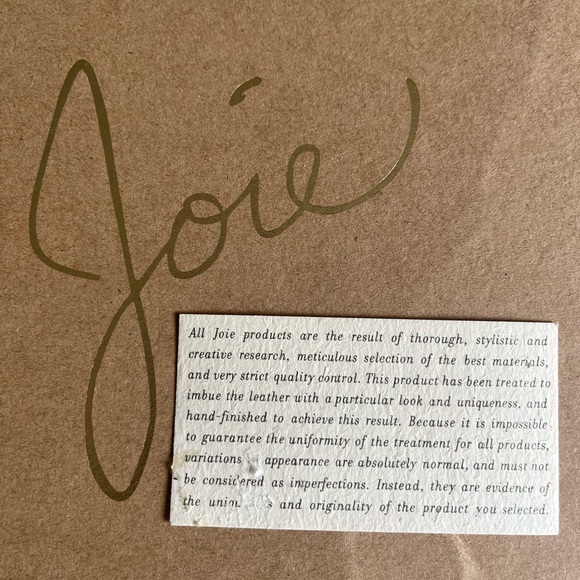 Joie
All Joie products are the result of thorough, stylistic and
creative research, meticulous selection of the best materials,
and very strict quality control. This product has been treated to
imbue the leather with a particular look and uniqueness, and
hand-finished to achieve this result. Because it is impossible
to guarantee the uniformity of the treatment for all products,
variations appearance are absolutely normal, and must not
be considered as imperfections. Instead, they are evidence of
the and originality of the product you selected.